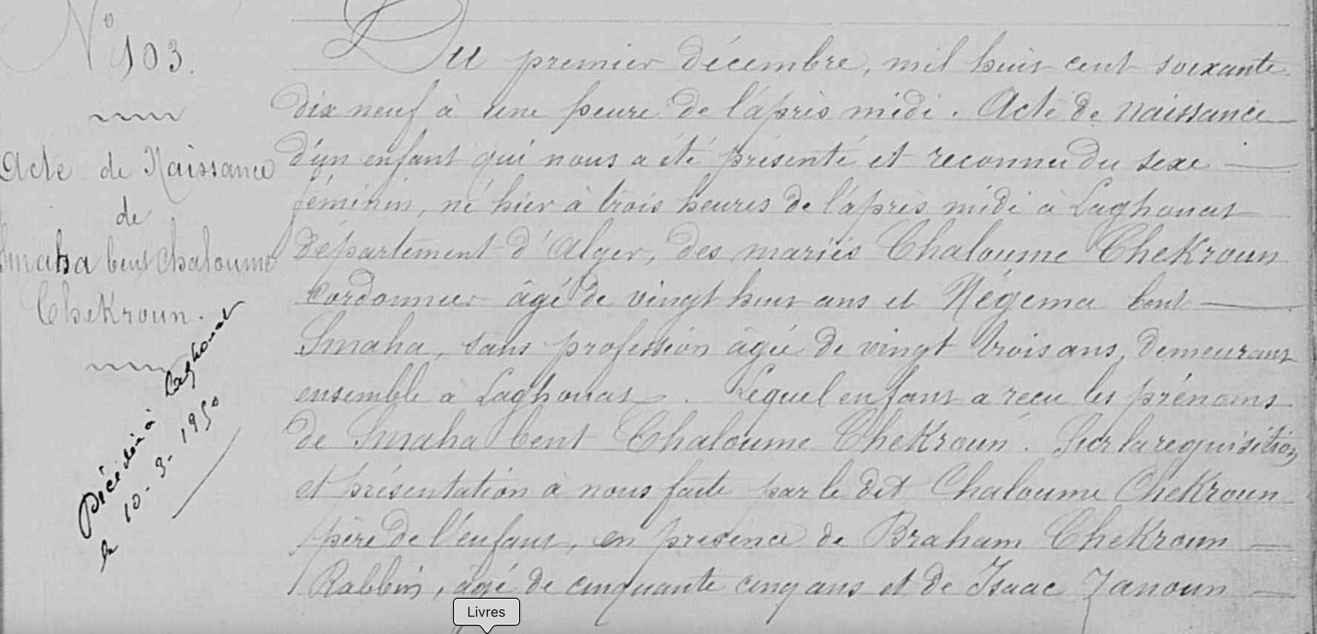 N° 103.
Acte de Naissance
de
Smaha bent Chaloume
Chekroun.
Décédée à Laghouat
le 10-3-1950
Du premier décembre, mil huit cent soixante
dix neuf à une heure de l'après midi. Acte de naissance
d'un enfant qui nous a été présenté et reconnu du sexe
féminin, né hier à trois heures de l'après midi à Laghouat
département d'Alger, des mariés Chaloume Chekroun
Cordonnier âgé de vingt huit ans et Négema bent
Smaha, sans profession âgée de vingt trois ans, demeurant
ensemble à Laghouat. Lequel enfant a reçu les prénoms
de Smaha bent Chaloume Chekroun. Sur la requisition
et présentation à nous faite par le dit Chaloume Chekroun
père de l'enfant, en présence de Braham Chekroun
Rabbin, âgé de cinquante cinq ans et de Isaac Zanoun
Livres